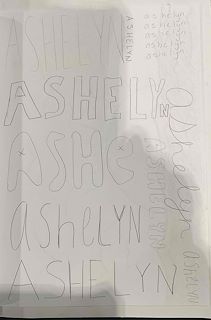 ASHELYN
ASHELYN
ashelyn
ashelyn
ashelyn
ashelyn
ashelyn
ASHELYN
AsHe
ashelYN
ASHELYN
ashelyn
ASHELYN
ashelyn